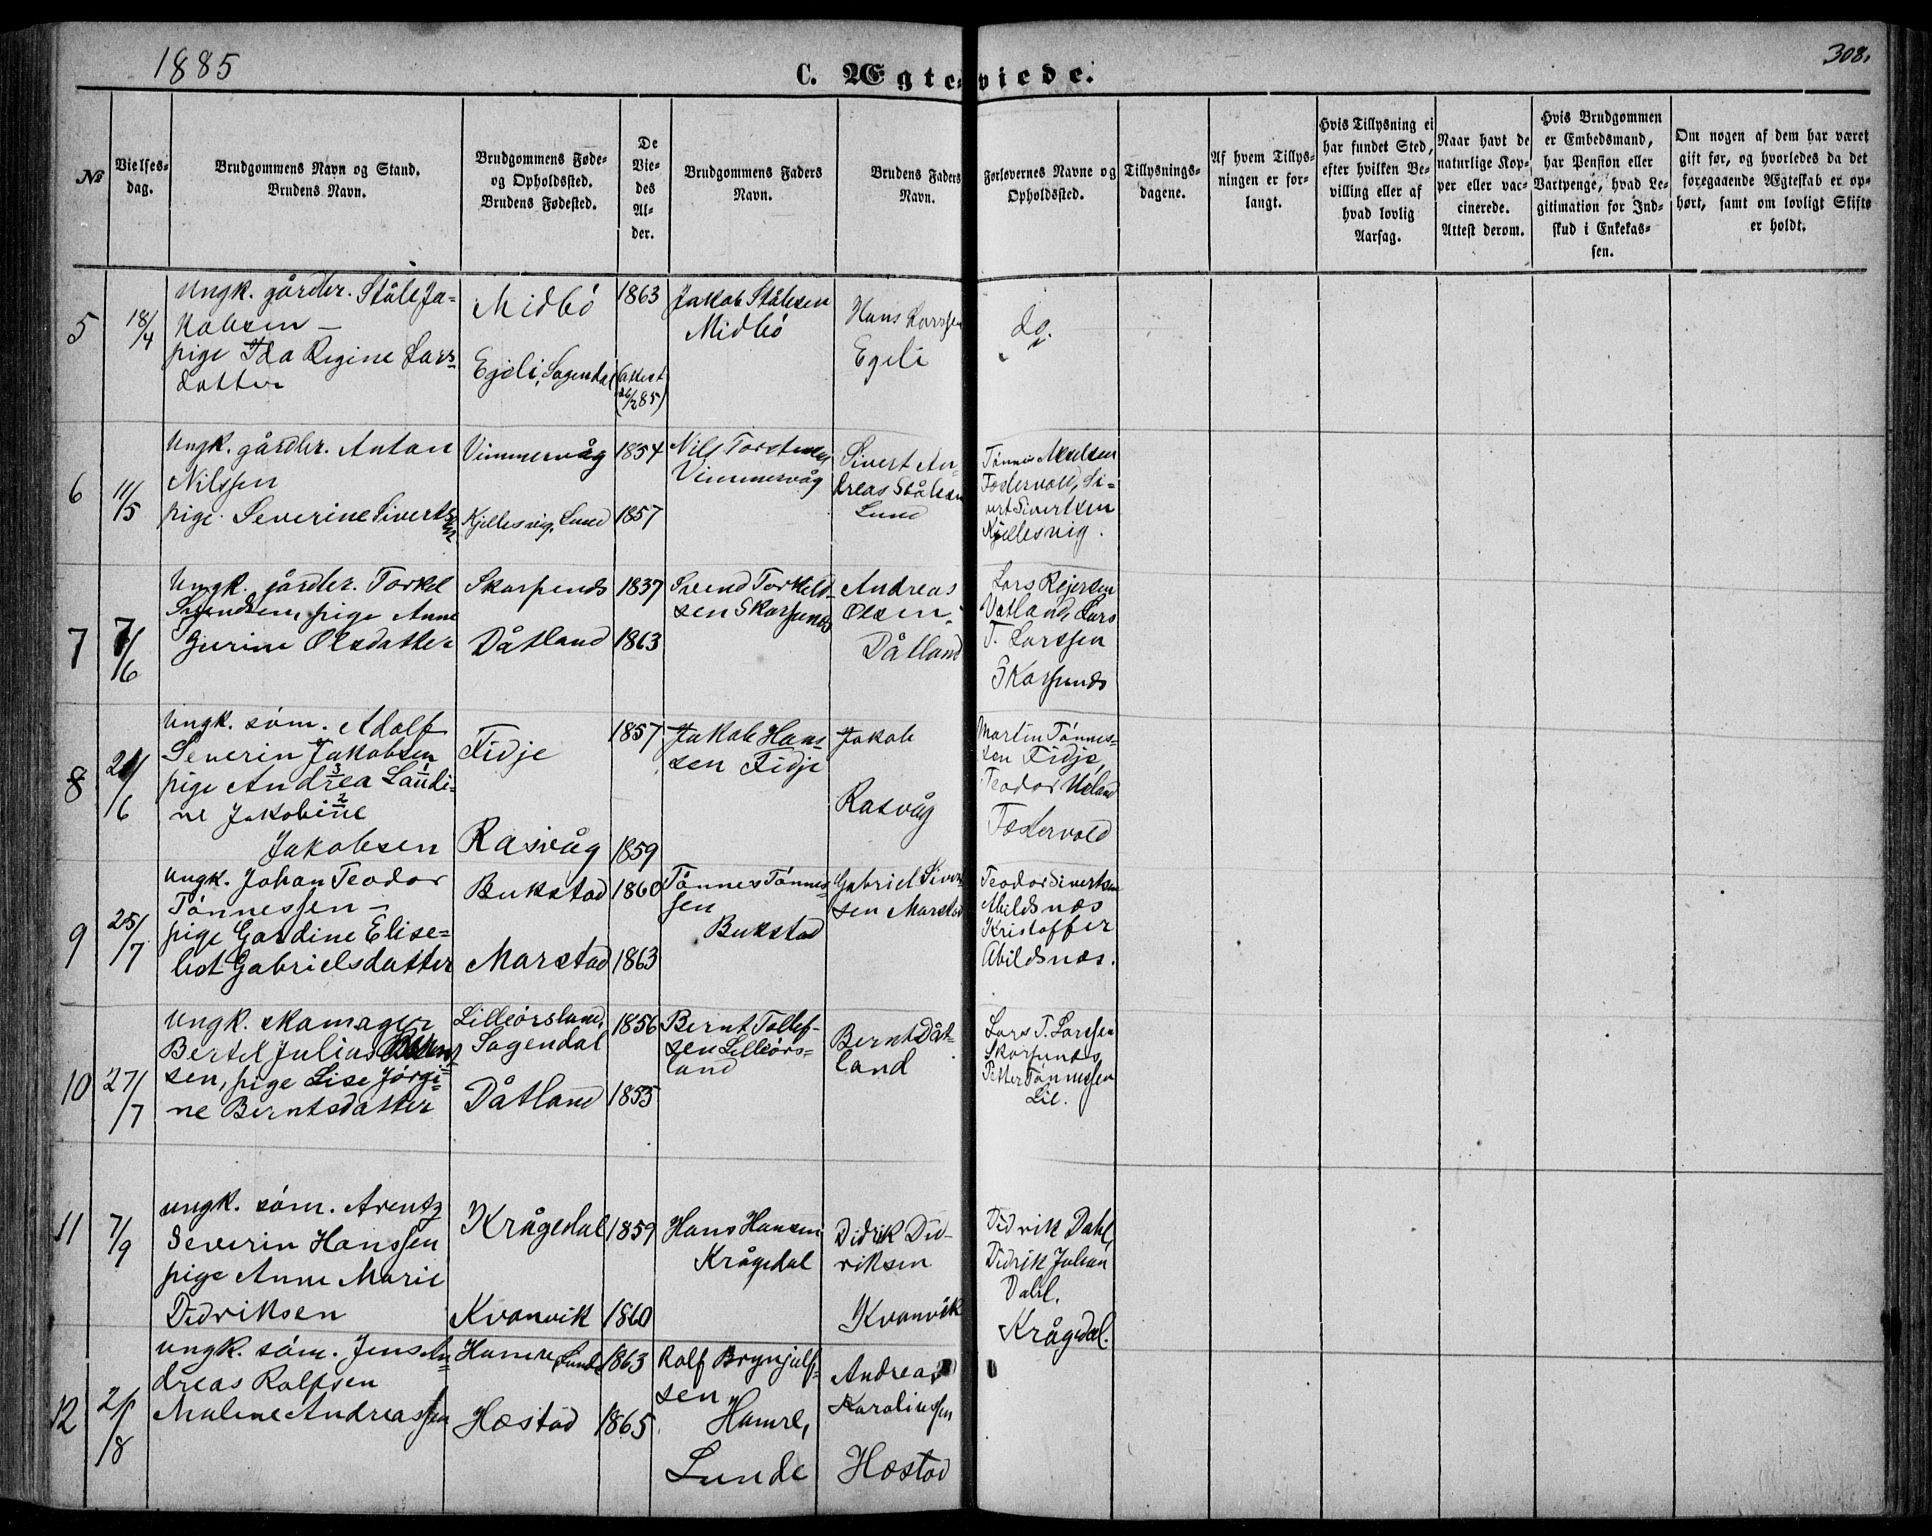 1885
C. Ægteviede.
308.
No
Vielses-
dag.
Brudgommens Navn og Stand.
Brudens Navn.
Brudgommens Føde-
og Opholdssted.
Brudens Fødested.
De
Vie-
des
Al-
der.
Brudgommens Faders
Navn.
Brudens Faders
Navn.
Forlovernes Navne og
Opholdssted.
Tillysnings-
dagene.
Af hvem Tillys-
ningen er for-
langt.
Hvis Tillysning ei
har fundet Sted,
efter hvilken Be-
villing eller af
hvad lovlig
Aarsag.
Naar havt de
naturlige Kop-
per eller vac-
cinerede.
Attest derom.
Hvis Brudgommen
er Embedsmand,
har Pension eller
Vartpenge, hvad Le-
gitimation for Ind-
skud i Enkekas-
sen.
Om nogen af dem har været
gift før, og hvorledes da det
foregaaende Ægteskab er op-
hørt, samt om lovligt Skifte
er holdt.
5
18/4
Ungk. gårdbr. Ståle Ja-
kobsen –
pige Ida Regine Lars-
datter
Midbö
Egeli, Sogendal
1863
(attest
26/2 85)
Jakob Stålesen
Midbö
Hans Larssen
Egeli
do.
6
11/5
Ungk. gårdbr. Anton
Nilssen
pige Severine Sivertsen
Vimmervåg
Kjellesvig, Lund
1854
1857
Nils Torstensen
Vimmervåg
Sivert An-
dreas Stålesen
Lund
Tönnes Axelsen
Fostervold, Si-
vert Sivertsen
Kjellesvig.
7
7/6
Ungk. gårdbr. Torkel
Svendsen, pige Anne
Gurine Olsdatter
Skarpends
Dåtland
1837
1863
Svend Torkeld-
sen Skarpends
Andreas
Olsen
Dåtland
Lars Rejersen
Vatland, Lars
T. Larssen
Skarpends
8
21/6
Ungk. söm. Adolf
Severin Jakobsen
pige Andrea Laudi-
3 1
ne Jakobine
2
Jakobsen
Fidje
Rasvåg
1857
1859
Jakob Han-
sen Fidje
Jakob
Rasvåg
Martin Tönnes-
sen Fidje,
Teodor Ueland
Fostervold
9
25/7
Ungk. Johan Teodor
Tönnessen –
pige Gardine Elise-
bet Gabrielsdatter
Bukstad
Marstad
1860
1863
Tönnes Tönnes-
sen
Bukstad
Gabriel Siver-
sen Marstad
Teodor Sivertsen
Abildsnæs
Kristoffer
Abildsnæs.
10
27/7
Ungk. skomager
Bertel Julius Bernt-
sen, pige Lise Jörgi-
ne Berntsdatter
Lilleörsland,
Sogendal
Dåtland
1856
1855
Bernt Tollef-
sen Lilleörs-
land
Bernt Dåt-
land
Lars T. Larssen
Skarpends
Petter Tönnessen
Lie.
11
7/9
Ungk. söm. Arentz
Severin Hanssen
pige Anne Marie
Didriksen
Krågedal
Kvanvik
1859
1860
Hans Hansen
Krågedal
Didrik Did-
riksen
Kvanvik
Didrik Dahl,
Didrik Julian
Dahl.
Krågedal.
12
21/8
Ungk. söm. Jens An-
dreas Rolfsen
Maline Andreassen
Hamre, Lunde
Hæstad
1863
1865
Rolf Brynjulf-
sen
Hamre,
Lunde
Andreas
Karoliussen
Hæstad